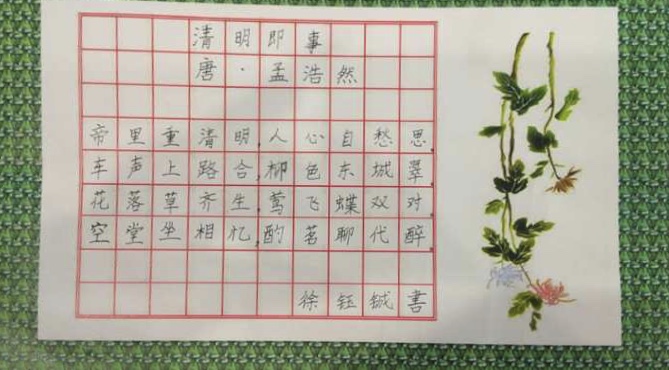 清明即事
唐·孟浩然
帝里重清明,人心自愁思.
车声上路合,柳色东城翠.
花落草齐生,莺飞蝶双对.
空堂坐相忆,酌茗聊代醉.
徐钰铖書